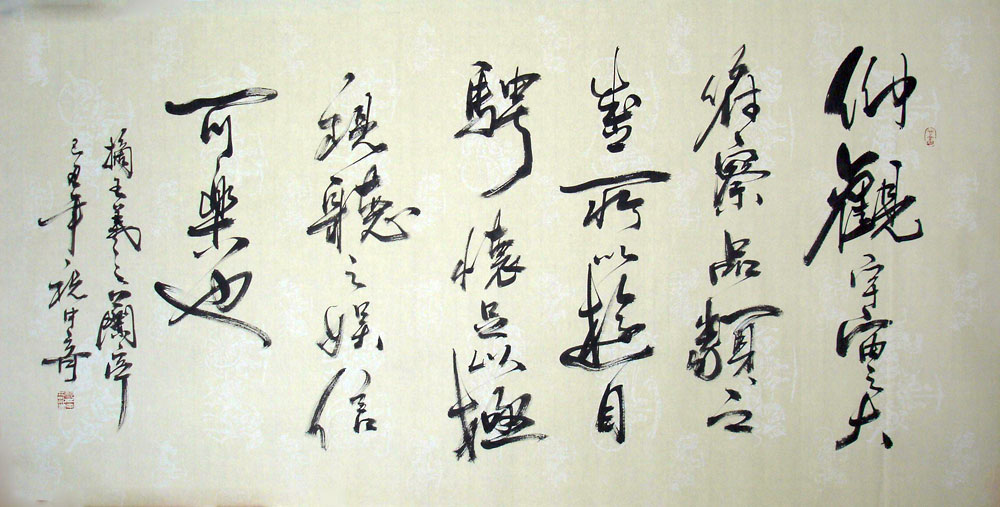 仰觀宇宙之大
俯察品類之
盛所以遊目
騁懷足以極
視聽之娛信
可樂也
摘王羲之蘭亭序
己丑年